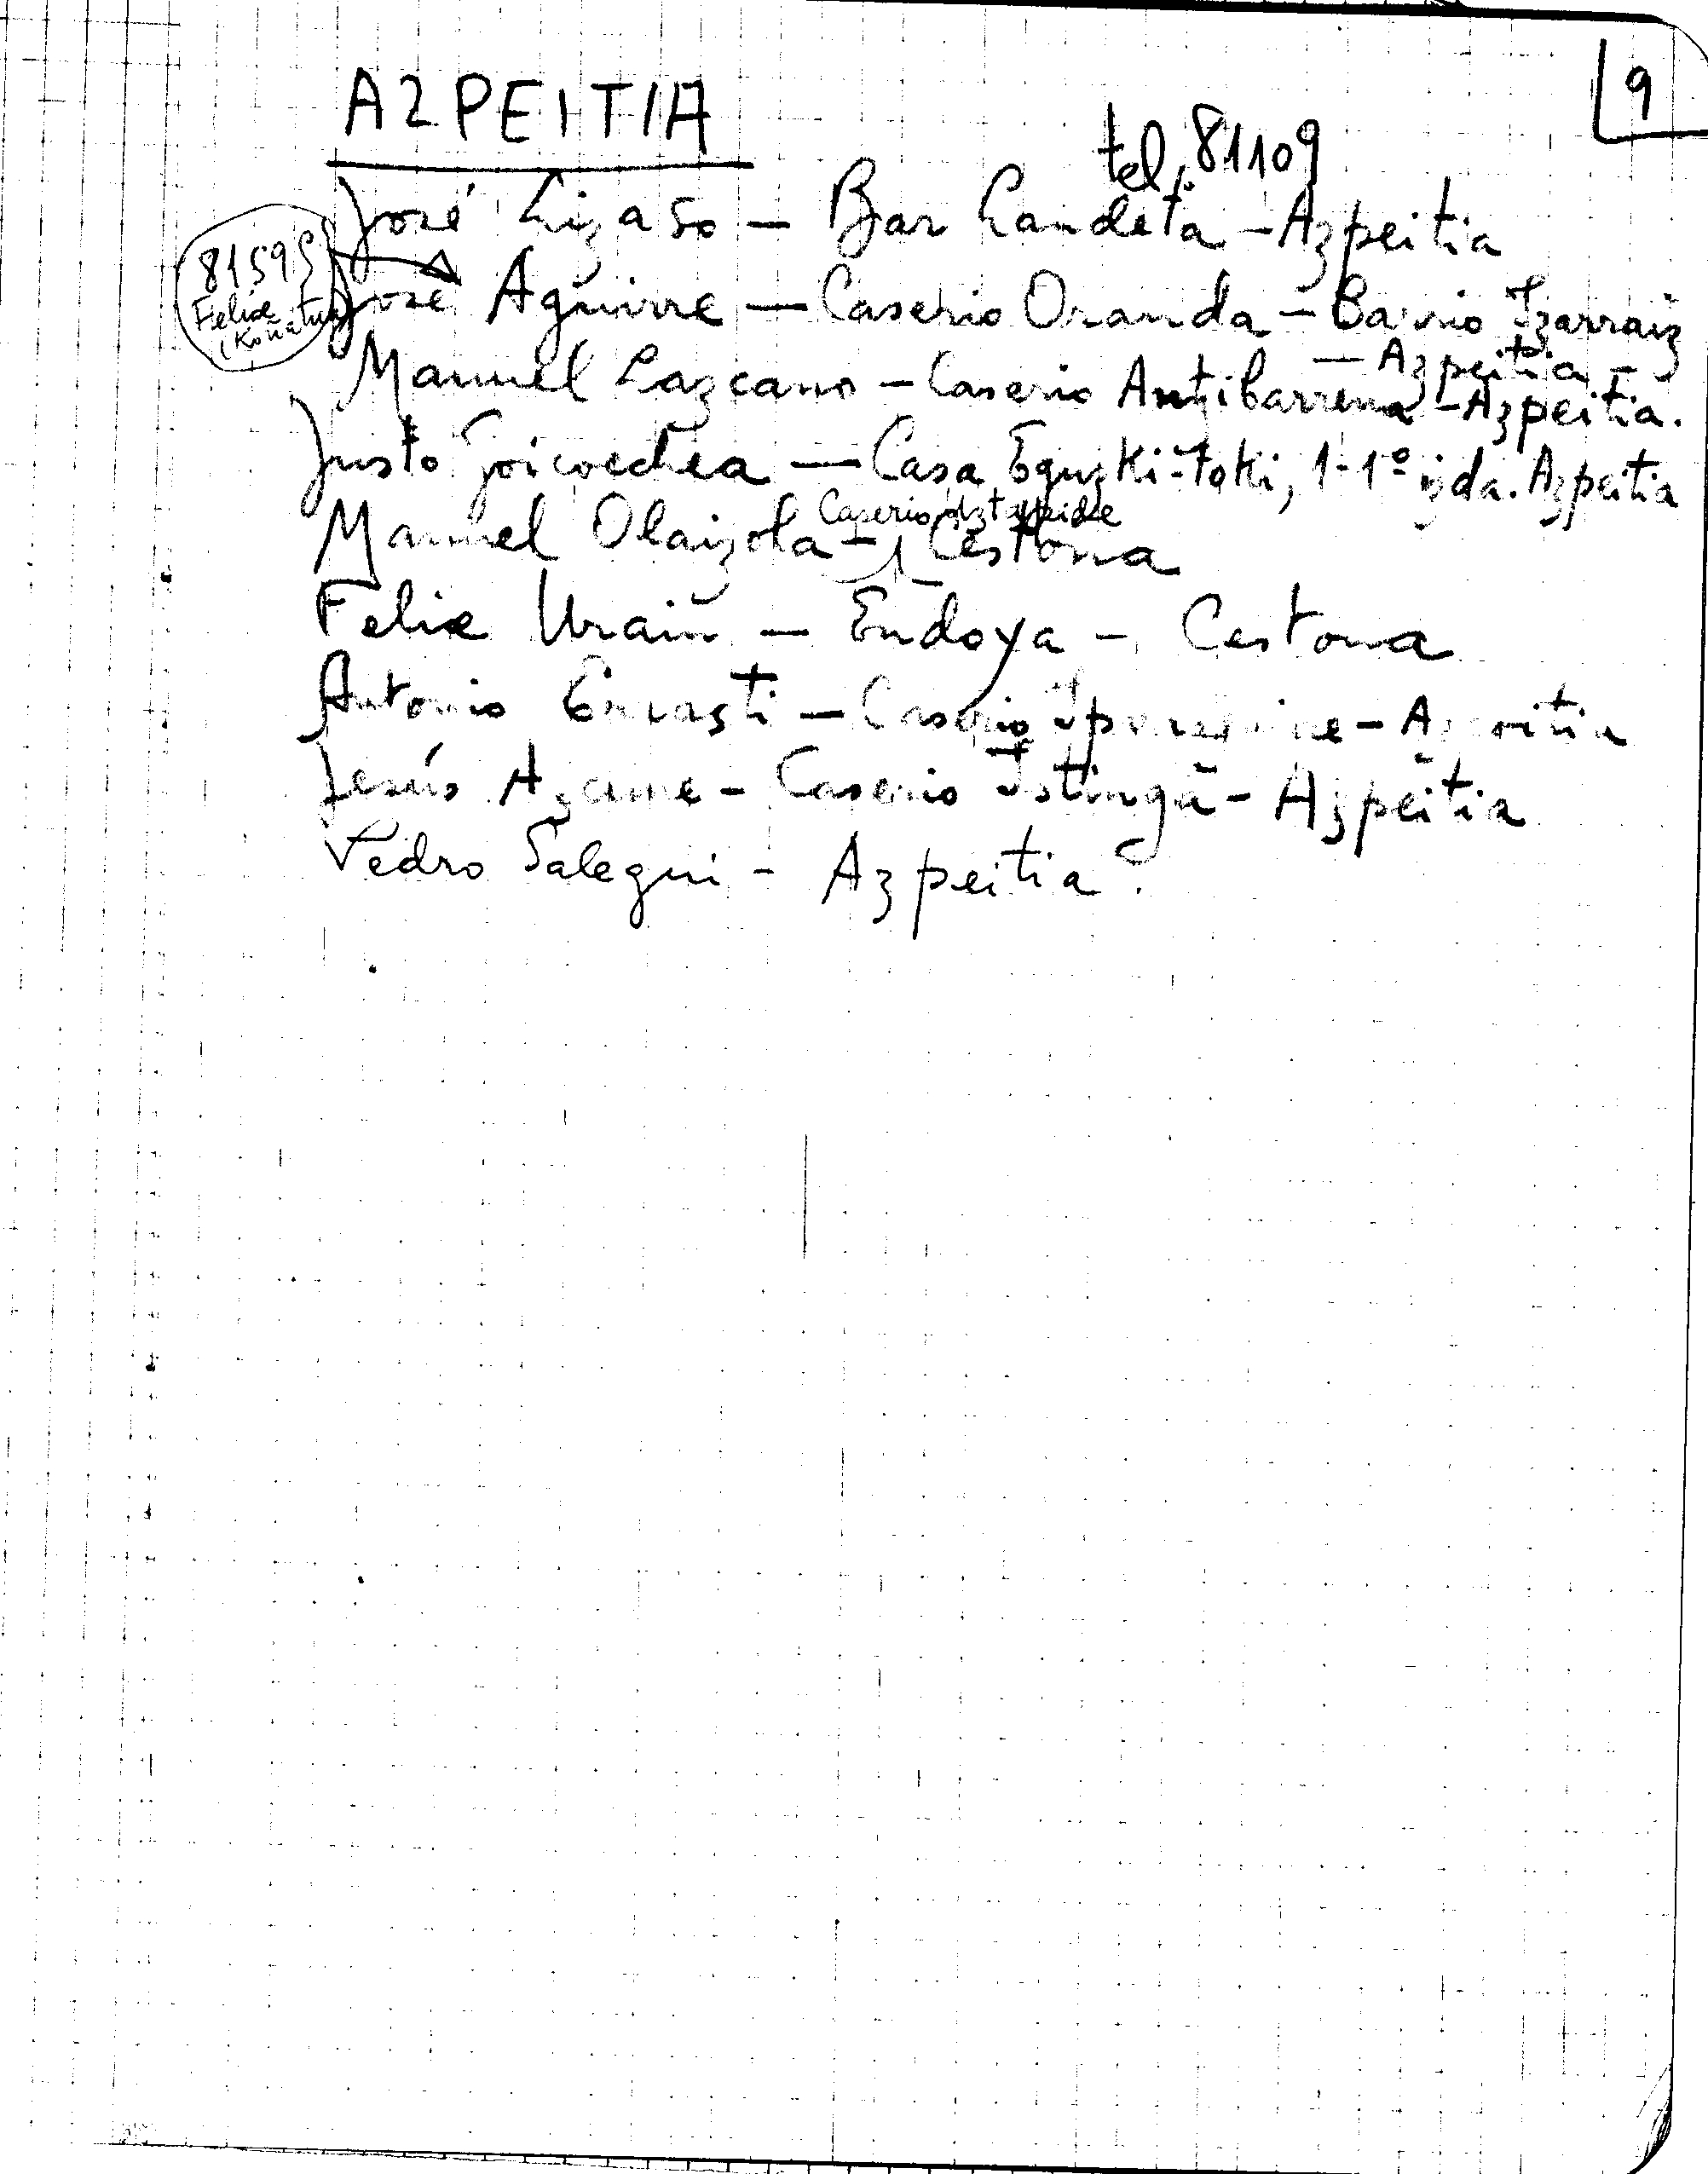 9
AZPEITIA
tel. 81109
José Lizaso – Bar Landeta – Azpeitia
81595
Felix
(Koñatua)
José Aguirre – Caserio Oranda – Barrio Izarraiz
– Azpeitia –
Manuel Lazcano – Caserio Antibarrena – Azpeitia.
Justo Goicoechea – Casa Eguzki-Toki, 1-1º izda. Azpeitia
Caserio
Manuel Olaizola – Cestona
Felix Urain – Endoya – Cestona
Antonio – Caserio
Jesús – Caserio – Azpeitia
Pedro Salegui – Azpeitia?